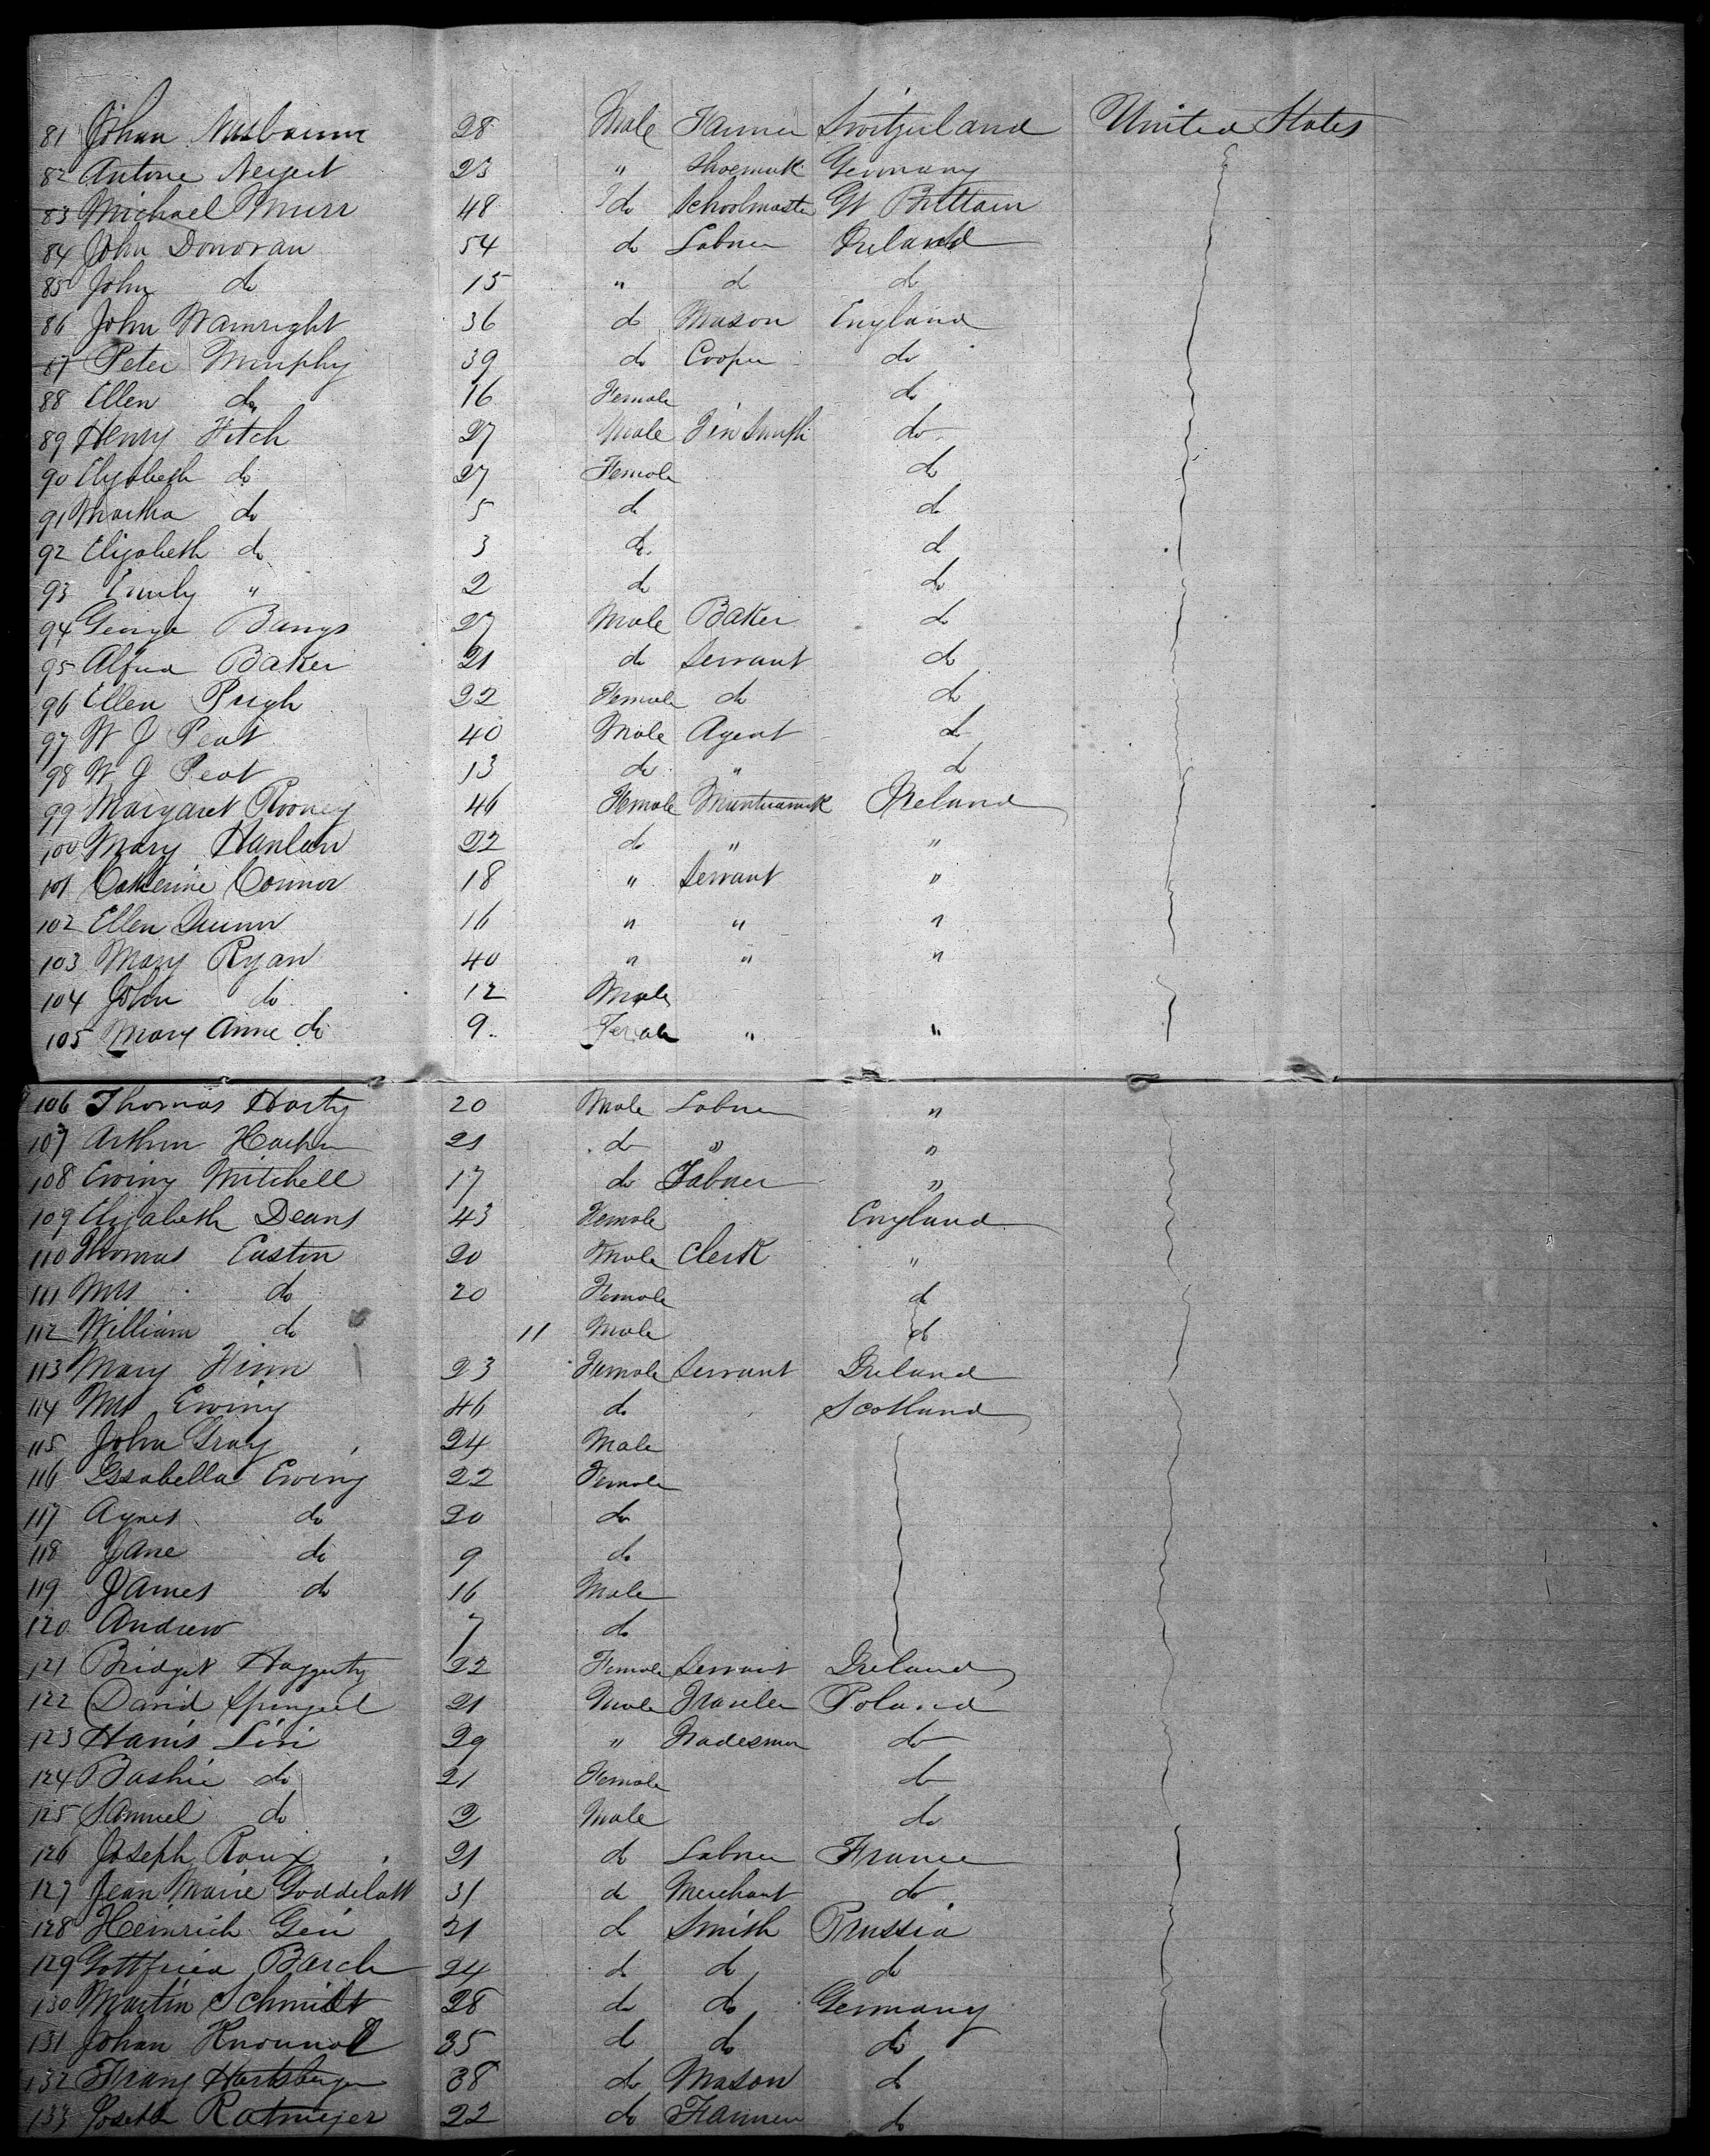 81 Johan Nusbaum 28 Male Farmer Switzerland United States
82 Antone 23 " Shoemak Germany
83 Michael Murr 48 do Schoolmaster Gt Brittain
84 John Donovan 54 do Labrer Ireland
85 John do 15 " d do
86 John Wainright 36 do Mason England
87 Peter Murphy 39 do Cooper do
88 Ellen do 16 Female do
89 Henry Fitch 27 Male Tin Smith do
90 Elizabeth do 27 Female do
91 Martha do 5 do do
92 Elizabeth do 3 do. d
93 Emily " 2 do do
94 George Bangs 27 Male Baker do
95 Alfred Baker 21 do Servant do
96 Ellen Pugh 22 Female do do
97 W J Peat 40 Male Agent d
98 W J Peat 13 do " d
99 Margaret Rooney 46 Female Mantuamak Ireland
100 Mary Hanlan 22 do " "
101 Catherine Connor 18 " Servant "
102 Ellen Quinn 16 " " "
103 Mary Ryan 40 " " "
104 John do 12 Male
105 Mary Anne do 9. Female " "
106 Thomas Harty 20 Male Labrer "
107 Arthur 21 do " "
108 Ewing Mitchell 17 do Labrer "
109 Elizabeth Deans 43 Female England
110 Thomas Easton 20 Male Clerk "
111 Mrs do 20 Female d
112 William do 11 Male do
113 Mary Finn 23 Female Servant Ireland
114 Mrs Ewing 46 do Scotland
115 John Gray 24 Male
116 Issabella Ewing 22 Female
117 Agnes do 20 do
118 Jane do 9 do
119 James do 16 Male
120 Andrew 7 do
121 Bridget Haggerty 22 Female Servant Ireland
122 David 21 Male Traveler Poland
123 Harris Livi 29 " Tradesman do
124 Bashie do 21 Female do
125 Samuel do 2 Male do
126 Joseph Roux 21 do Labrer France
127 Jean Marie 31 do Merchant do
128 Heinrich 21 d Smith Prussia
129 Gottfried Barch 24 d do do
130 Martin Schmidt 28 do do Germany
131 Johan 35 d do do
132 Franz 38 do Mason d
133 Joseth Ratmejer 22 do Farmer do